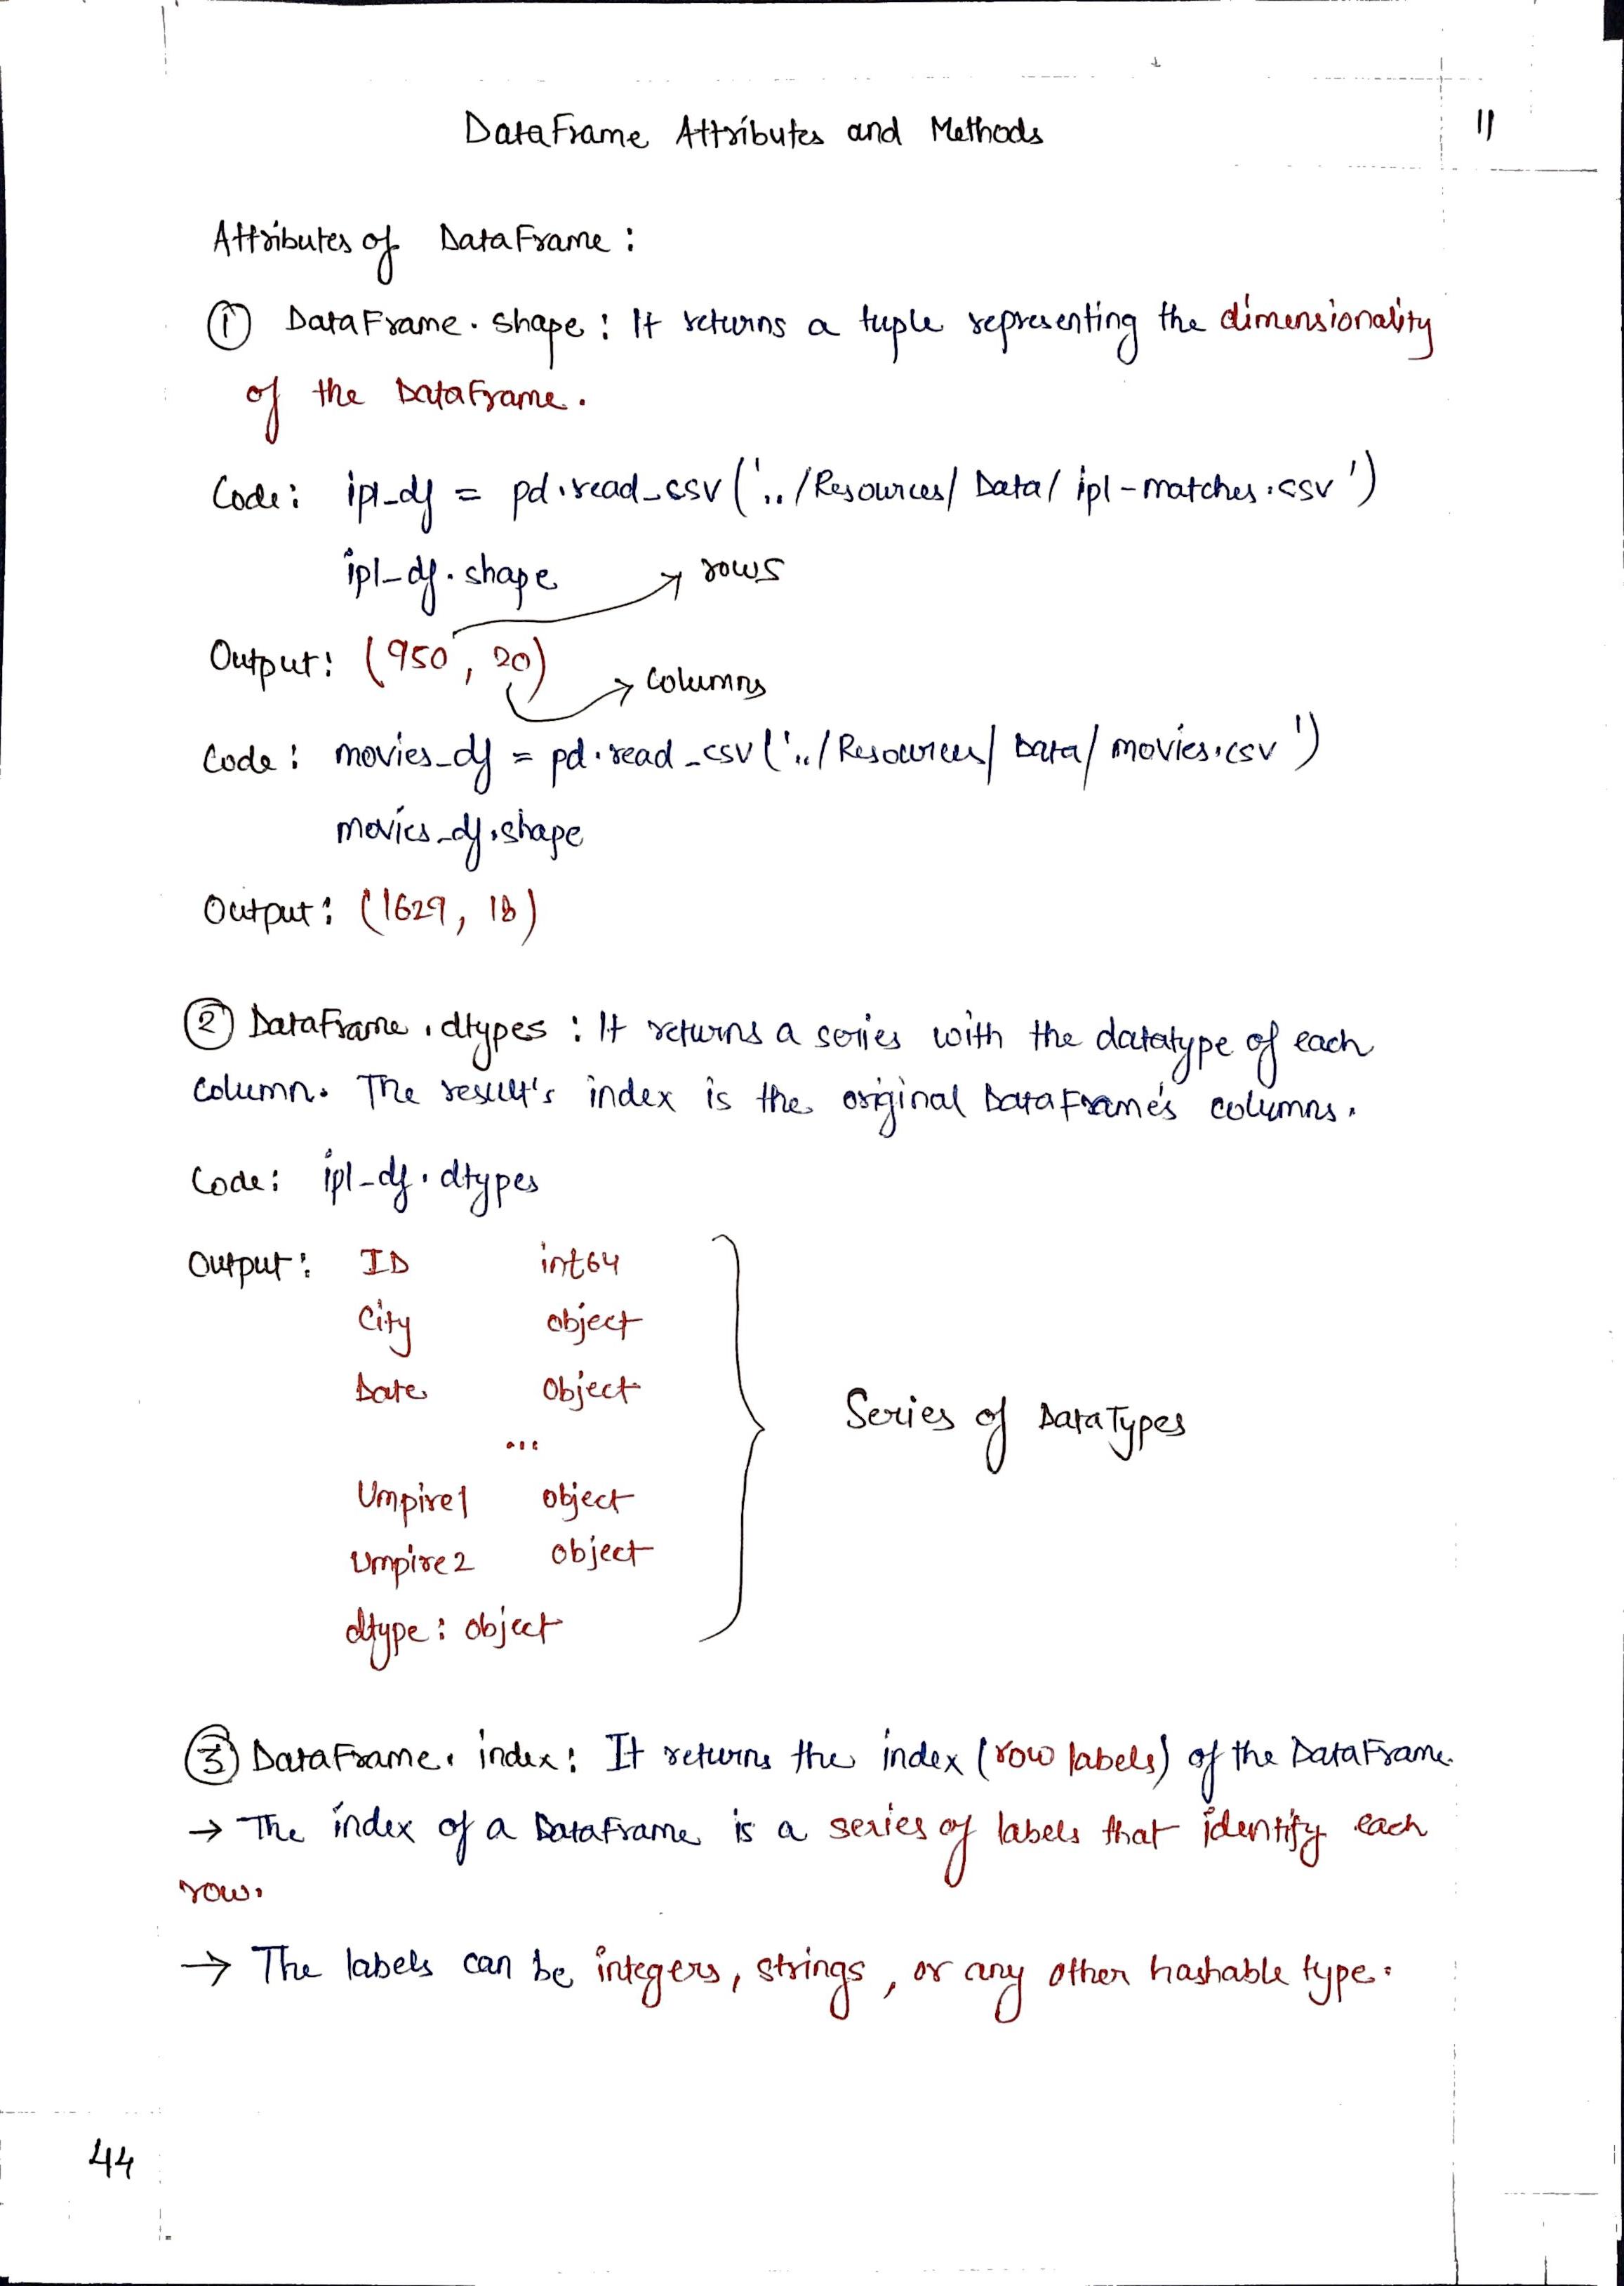 DataFrame Attributes and Methods
11
Attributes of DataFrame :
① DataFrame.shape : It returns a tuple representing the dimensionality
of the DataFrame.
Code: ipl_df = pd.read_csv('../Resources/Data/ipl-matches.csv')
ipl_df.shape
rows
Output: (950, 20)
columns
Code: movies_df = pd.read_csv('../Resources/Data/movies.csv')
movies_df.shape
Output: (1629, 18)
② DataFrame.dtypes : It returns a series with the datatype of each
column. The result's index is the original DataFrame's columns.
Code: ipl_df.dtypes
Output: ID int64
City object
Date object
...
Series of DataTypes
Umpire1 object
Umpire2 object
dtype: object
③ DataFrame.index: It returns the index (row labels) of the DataFrame.
→ The index of a DataFrame is a series of labels that identify each
row.
→ The labels can be integers, strings, or any other hashable type.
44